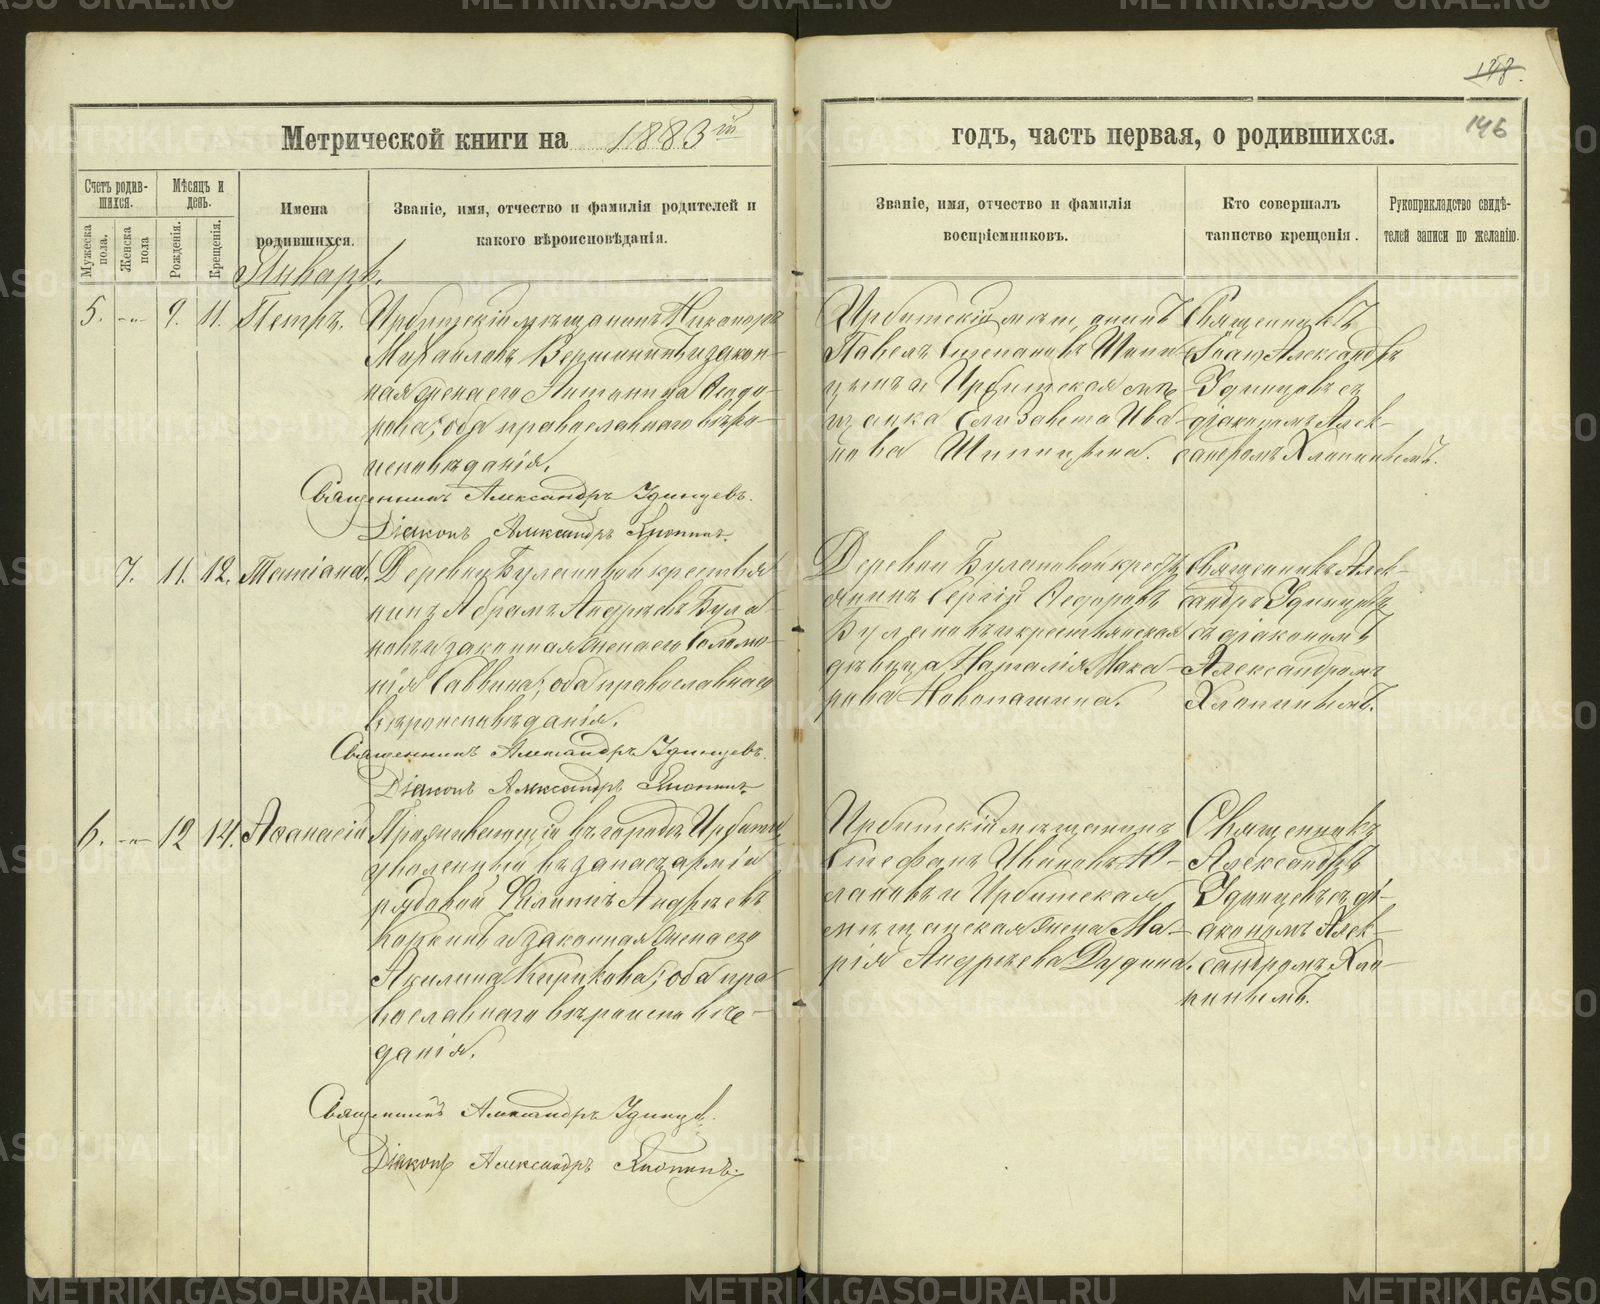 148.
146
Метрической книги на 1883й
годъ, часть первая, о родившихся.
Счетъ родив-
шихся.
Мѣсяцъ и
день.
Имена
родившихся.
Званіе, имя, отчество и фамилія родителей и
какого вѣроисповѣданія.
Мужеска
пола.
Женска
пола
Рожденія.
Крещенія.
Званіе, имя, отчество и фамилія
воспріемниковъ.
Кто совершалъ
таинство крещенія.
Рукоприкладство свидѣ-
телей записи по желанію.
Январь.
5. -"- 9. 11. Петръ.
Ирбитскій мѣщанинъ Никаноръ
Михайловъ Вершининъ и закон-
ная жена его Антонина Ѳедо-
рова; оба православнаго вѣро-
исповѣданія.
Священникъ Александръ Удинцевъ.
Діаконъ Александръ Хлопинъ.
Ирбитскій мѣщанинъ
Павелъ Степановъ Шипи-
цынъ и Ирбитская мѣ-
щанка Елизавета Ива-
нова Шипицына.
Священникъ
Іоаннъ Александръ
Удинцовъ съ
діакономъ Алек-
сандромъ Хлопинымъ.
7. 11. 12. Татіана.
Деревни Булановой крестья
нинъ Абрамъ Андреевъ Була
новъ и законная жена его Соломо-
нія Саввина; оба православнаго
вѣроисповѣданія.
Священникъ Александръ Удинцевъ.
Діаконъ Александръ Хлопинъ.
Деревни Булановой крестья
янинъ Сергій Ѳедоровъ
Булановъ и крестьянская
дѣвица Наталія Мака-
рова Новопашина.
Священникъ Алек-
сандръ Удинцевъ
съ діакономъ
Александромъ
Хлопинымъ.
6. -"- 12 14. Аѳанасій
Проживающій въ городѣ Ирбити
уволенный въ запасъ арміи
рядовой Филиппъ Андреевъ
и законная жена его
Акилина Кирикова; оба пра
вославнаго вѣроисповѣ-
данія.
Священникъ Александръ Удинцев.
Діаконъ Александръ Хлопинъ.
Ирбитскій мѣщанинъ
Стефанъ Ивановъ
и Ирбитская
мѣщанская жена Ма-
рія Андреева Дудина.
Священникъ
Александръ
Удинцевъ съ ді-
акономъ Алек-
сандромъ Хло-
пинымъ.
METRIKI.GASO-URAL.RU